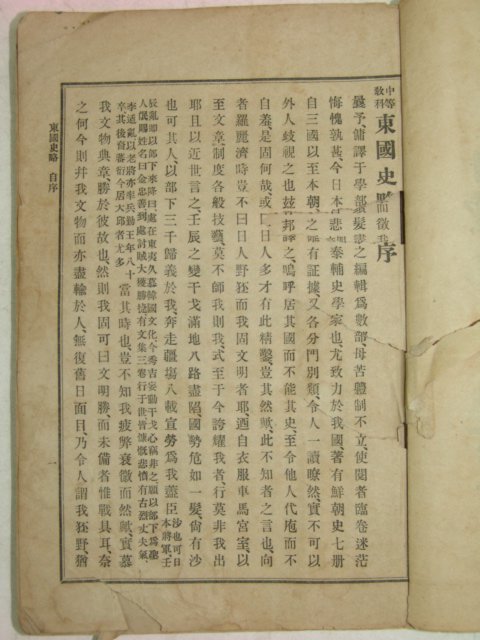 中等敎科東國史略序
曩予傭譯于學部 之編輯爲數部毋苦體制不立使閱者臨卷迷茫
悔愧孰甚今日本 泰輔史學家也尤致力於我國著有鮮朝史七册
自三國以至本朝 有証據又各分門別類令人一讀瞭然實不可以
外人歧視之也玆 嗚呼居其國而不能其史至令他人代庖而不
自羞是固何哉或曰日人多才有此精鑿豈其然歟此不知者之言也向
者羅麗濟時豈不曰日人野狂而我固文明者耶迺自衣服車馬宮室以
至文章制度各般技藝莫不師我則我式至于今誇耀我者行莫非我出
耶且以近世言之壬辰之變干戈滿地八路盡陷國勢危如一髮尙有沙
也可其人以部下三千歸義於我奔走疆場八載宣勞爲我藎臣沙也可日本將軍壬
辰亂卽以部下來降曰處在東夷久慕韓國文化今秀吉妄動干戈心竊非之願以部下爲氓
人嘉賜姓名曰金忠善到處討賊大獲勝捷有文集三卷行于世皆慷慨悲憤有古烈丈夫氣
李适亂以老將亦率兵勤王年八十
卒其後裔蕃衍今居大邱者尤多當其時也豈不知我疲弊衰微而然歟實慕
我文物典章勝於彼故也然則我固可曰文明勝而未備者惟戰具耳奈
之何今則幷我文物而亦盡輸於人無復舊日面目乃令人謂我狂野猶
東國史略 自序